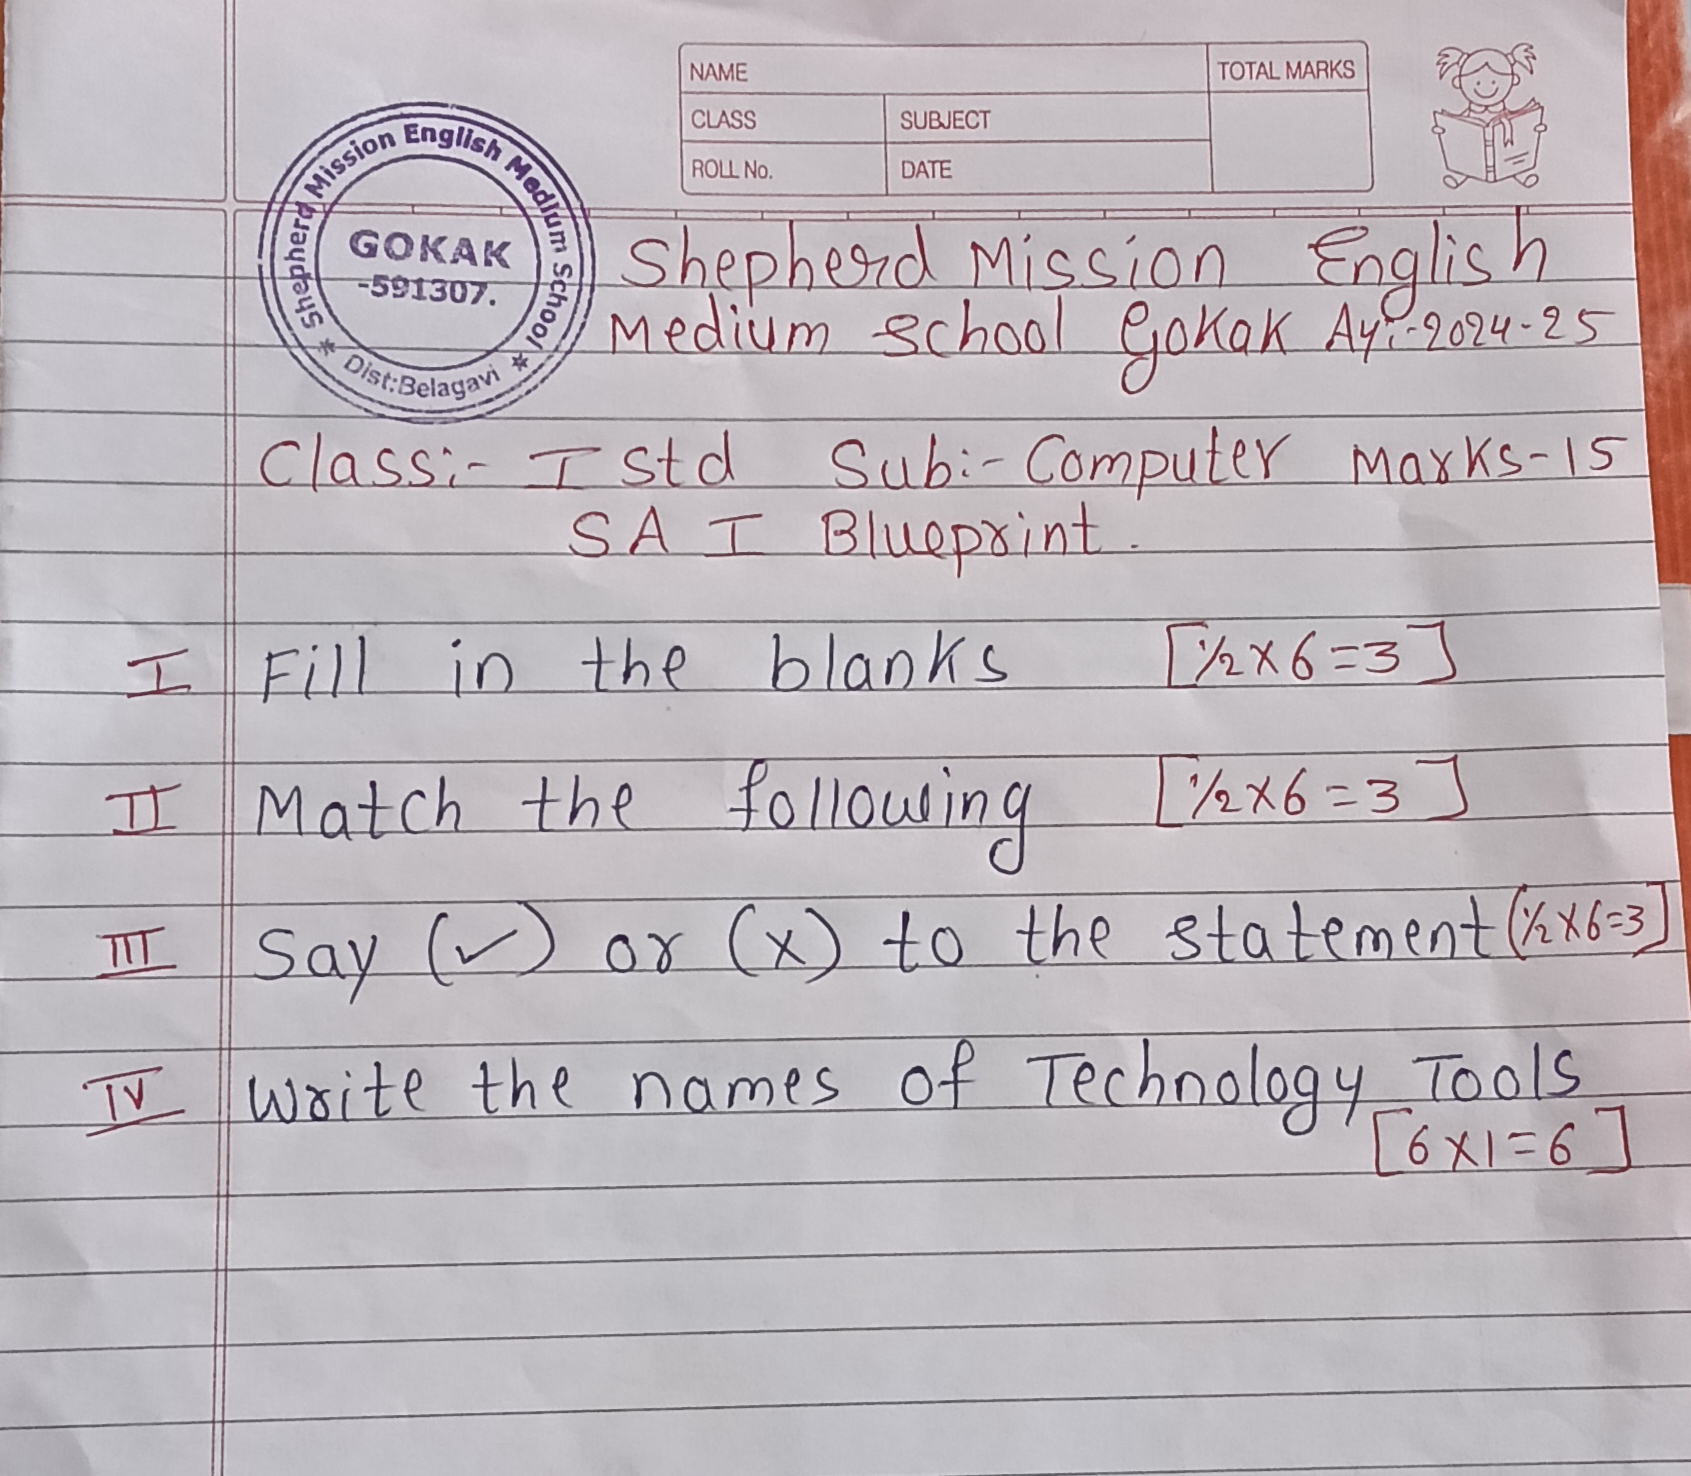 NAME
TOTAL MARKS
CLASS
SUBJECT
ROLL No.
DATE
Shepherd Mission English Medium School
GOKAK
-591307.
* Dist:Belagavi *
Shepherd Mission English
Medium School Gokak Ay:-2024-25
Class:- I Std Sub:- Computer Marks-15
SA I Blueprint.
I Fill in the blanks [½×6=3]
II Match the following [½×6=3]
III Say (✓) or (×) to the statement (½×6=3]
IV Write the names of Technology Tools
[6×1=6]